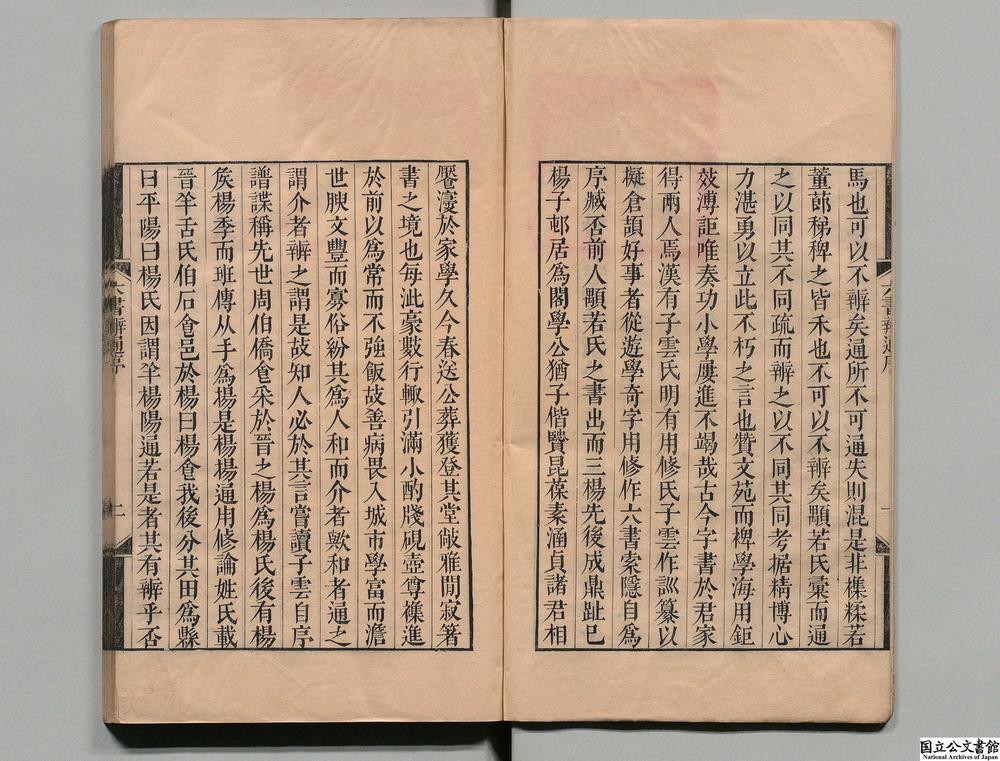 馬也可以不辧矣通所不可通失則混是非檏糅若
董蓈稊稗之皆禾也不可以不辧矣顒若氏彙而通
之以同其不同疏而辧之以不同其同考据精博心
力湛勇以立此不朽之言也贊文苑而裨學海用鉅
效溥詎唯奏功小學屢進不竭哉古今字書於君家
得兩人焉漢有子雲氏明有用修氏子雲作訓纂以
擬倉頡好事者從遊學奇字用修作六書索隱自爲
序臧否前人顒若氏之書出而三楊先後成鼎趾巳
楊子邨居爲閣學公猶子偕賢昆葆素涵貞諸君相
饜濅於家學久今春送公葬獲登其堂敞雅閒寂箸
書之境也每泚豪數行輙引滿小酌牋硯壺尊襍進
於前以爲常而不強飯故善病畏入城市學富而澹
世腴文豐而寡俗紛其爲人和而介者歟和者通之
謂介者辧之謂是故知人必於其言嘗讀子雲自序
譜諜稱先世周伯僑食采於晉之楊爲楊氏後有楊
矦楊季而班傳从手爲揚是楊揚通用修論姓氏載
晉羊舌氏伯石食邑於楊曰楊食我後分其田爲縣
曰平陽曰楊氏因謂羊楊陽通若是者其有辧乎否
六書辧通序
一
六書辧通序
二
国立公文書館
National Archives of Japan